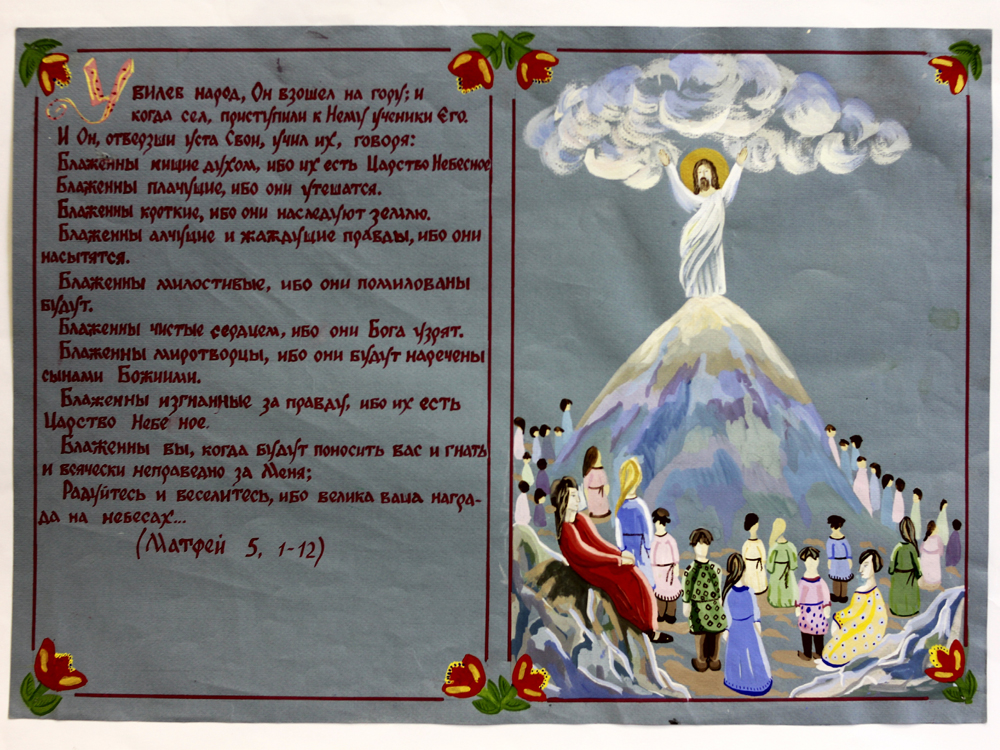 Увилев народ, Он взошел на гору; и
когда сел, приступили к Нему ученики Его.
И Он, отверзши уста Свои, учил их, говоря:
Блаженны нищие духом, ибо их есть Царство Небесное
Блаженны плачущие, ибо они утешатся.
Блаженны кроткие, ибо они наследуют землю.
Блаженны алчущие и жаждущие правды, ибо они
насытятся.
Блаженны милостивые, ибо они помилованы
будут.
Блаженны чистые сердцем, ибо они Бога узрят.
Блаженны миротворцы, ибо они будут наречены
сынами Божиими.
Блаженны изгнанные за правду, ибо их есть
Царство Небе ное.
Блаженны вы, когда будут поносить вас и гнать
и всячески неправедно за Меня;
Радуйтесь и веселитесь, ибо велика ваша награ-
да на небесах...
(Матфей 5, 1-12)